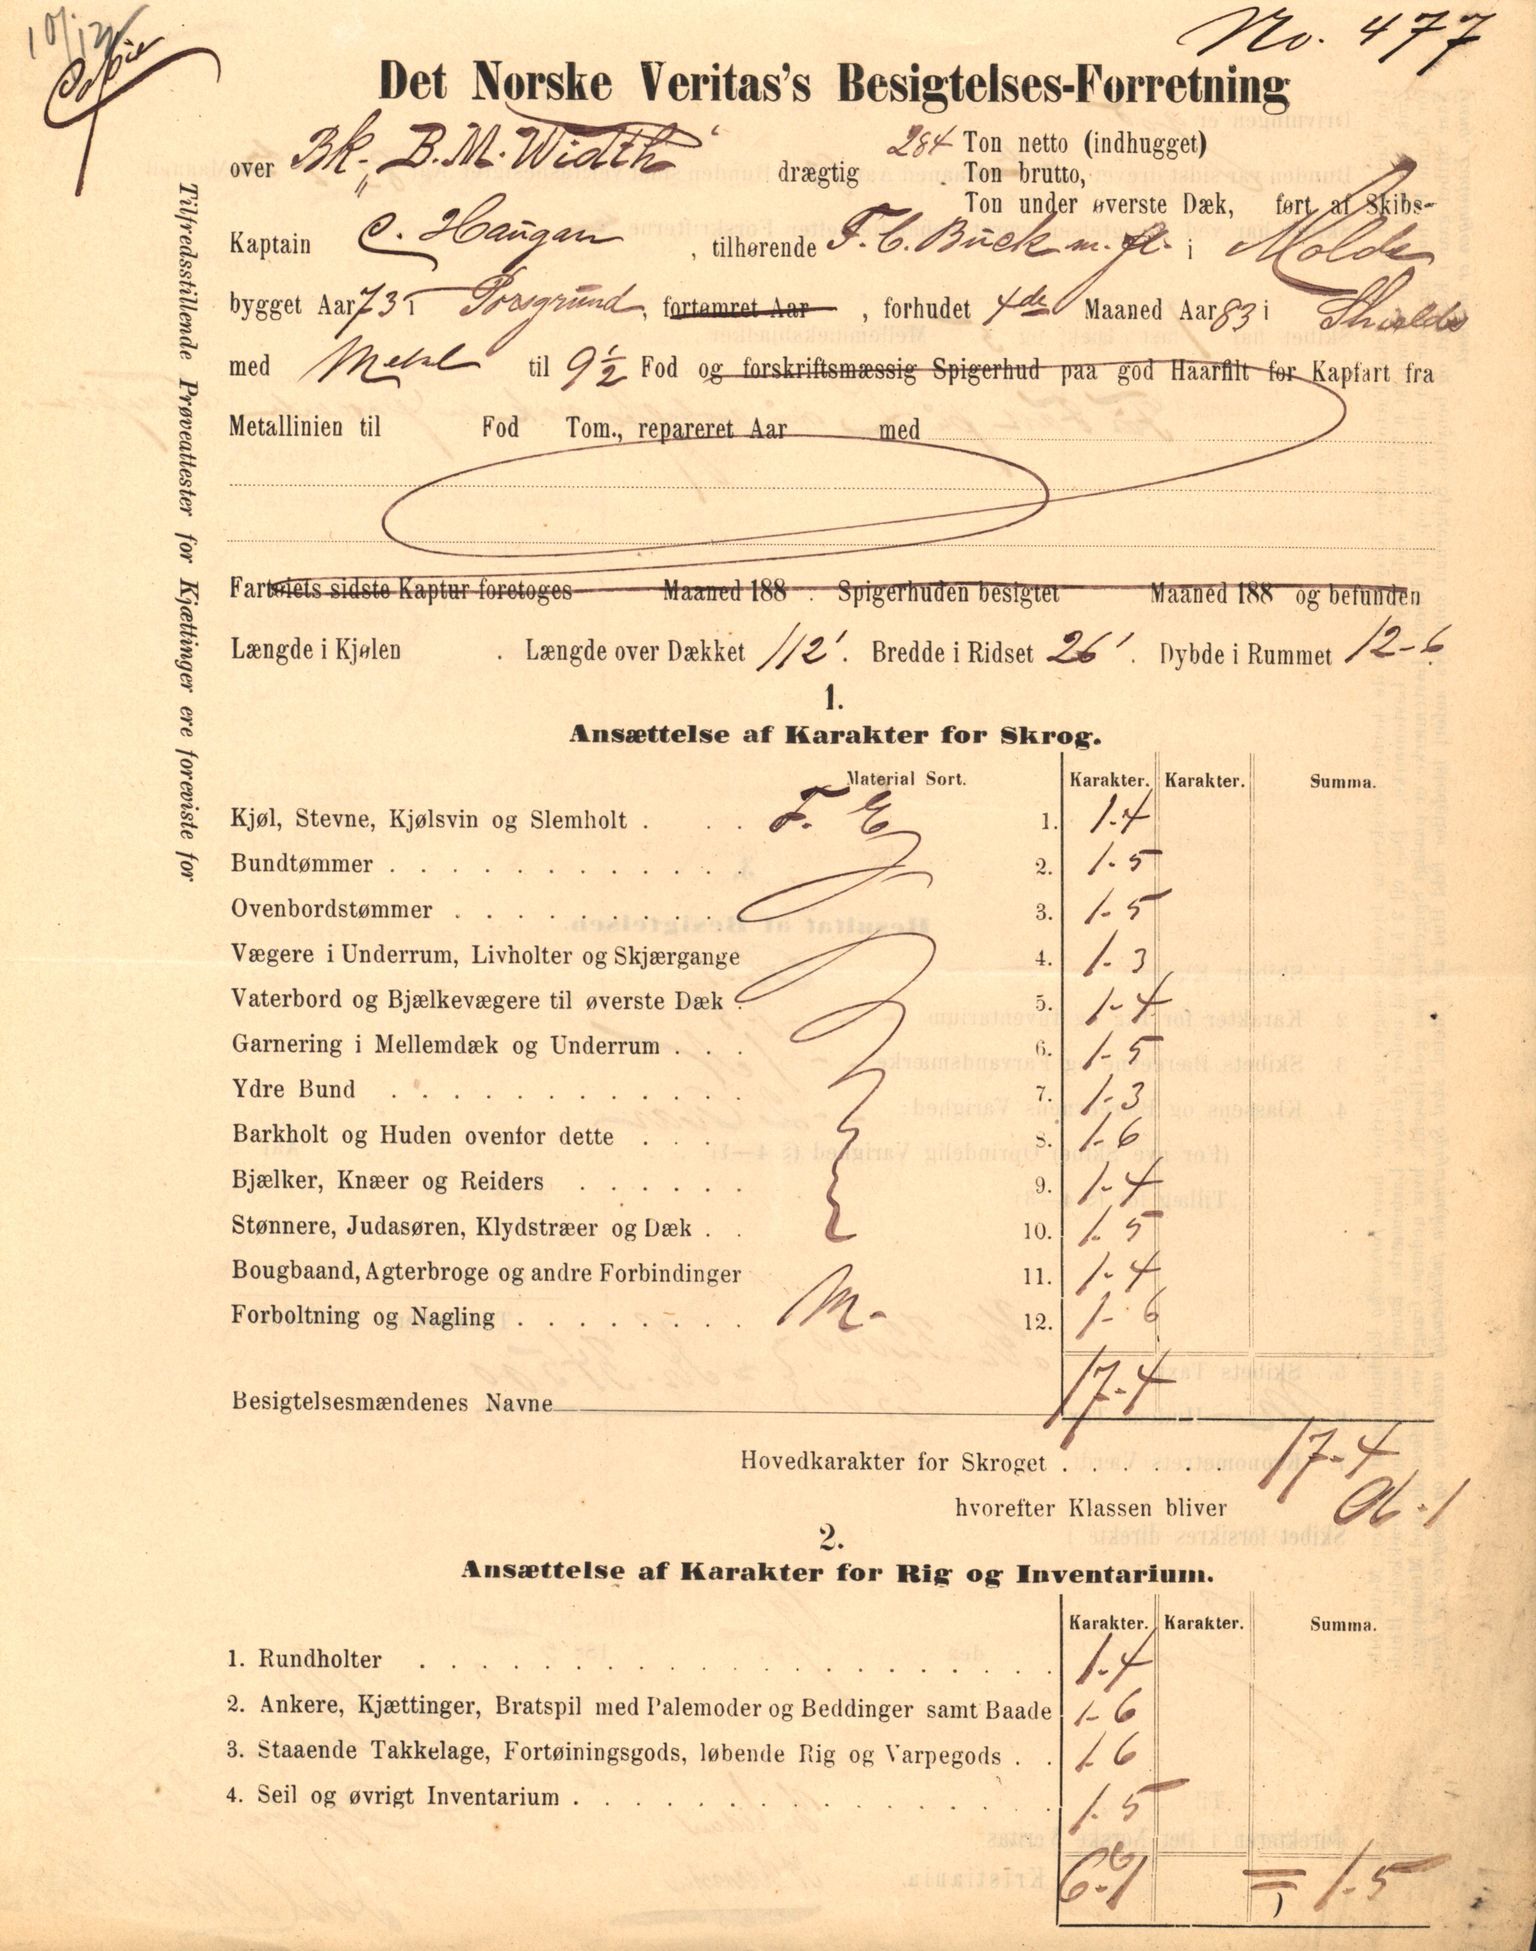 10/12
Copie
No. 477
Det Norske Veritas's Besigtelses-Forretning
over Bk. „B. M. Width" drægtig 284 Ton netto (indhugget)
Ton brutto,
Ton under øverste Dæk, ført af Skibs-
Kaptain C. Haugan, tilhørende F. C. Buck m. fl. i Molde
bygget Aar 73 i Porsgrund, fortømret Aar , forhudet 4de Maaned Aar 83 i Shields
med Metal til 9½ Fod og forskriftsmæssig Spigerhud paa god Haarfilt for Kapfart fra
Metallinien til Fod Tom., repareret Aar med
Fartøiets sidste Kaptur foretoges Maaned 188 . Spigerhuden besigtet Maaned 188 og befunden
Længde i Kjølen . Længde over Dækket 112'. Bredde i Ridset 26'. Dybde i Rummet 12-6
1.
Ansættelse af Karakter for Skrog.
Material Sort. Karakter. Karakter. Summa.
Kjøl, Stevne, Kjølsvin og Slemholt . . . F. E 1. 1-4
Bundtømmer . . . . . . . . . . . . 2. 1-5
Ovenbordstømmer . . . . . . . . . 3. 1-5
Vægere i Underrum, Livholter og Skjærgange 4. 1-3
Vaterbord og Bjælkevægere til øverste Dæk . 5. 1-4
Garnering i Mellemdæk og Underrum . . . 6. 1-5
Ydre Bund . . . . . . . . . . . . 7. 1-3
Barkholt og Huden ovenfor dette . . . 8. 1-6
Bjælker, Knæer og Reiders . . . . . . 9. 1-4
Stønnere, Judasøren, Klydstræer og Dæk . . 10. 1-5
Bougbaand, Agterbroge og andre Forbindinger 11. 1-4
Forboltning og Nagling . . . . . . . . M- 12. 1-6
17-4
Besigtelsesmændenes Navne
Hovedkarakter for Skroget . . . . . . 17-4
hvorefter Klassen bliver
2.
Ansættelse af Karakter for Rig og Inventarium.
Karakter. Karakter. Summa.
1. Rundholter . . . . . . . . . . . . . . . . . . 1-4
2. Ankere, Kjættinger, Bratspil med Palemoder og Beddinger samt Baade 1-6
3. Staaende Takkelage, Fortøiningsgods, løbende Rig og Varpegods . . 1-6
4. Seil og øvrigt Inventarium . . . . . . . . . . . . . 1-5
= 1-5
Tilfredsstillende Prøveattester for Kjættinger ere foreviste for